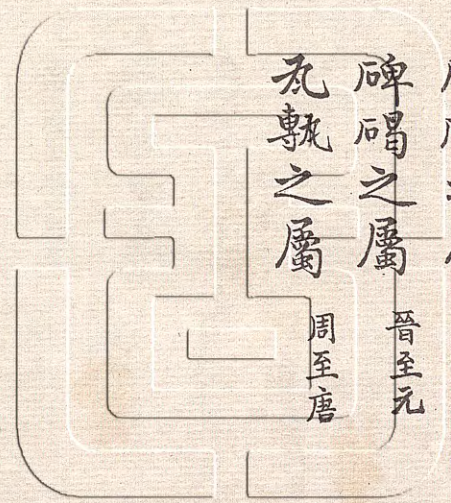 碑碣之屬 晉至元
瓦甎之屬 周至唐